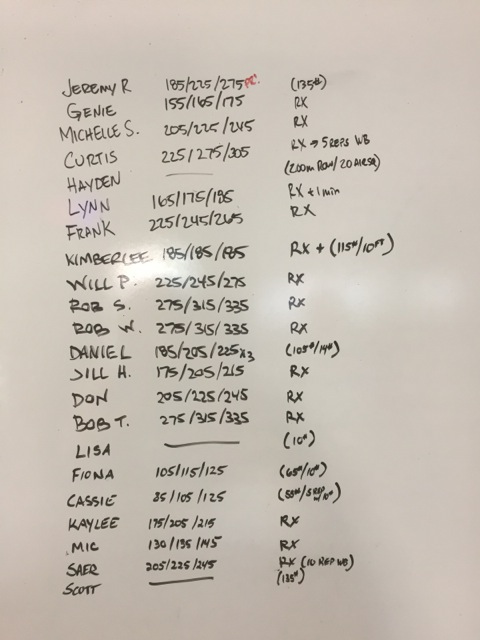 JEREMY R 185/225/275 PR! (135#)
GENIE 155/165/175 RX
MICHELLE S. 205/225/245 RX
CURTIS 225/275/305 RX → 5 REPS WB
HAYDEN — (200m ROW/20 AIRSQ)
LYNN 165/175/185 RX +1 min
FRANK 225/245/265 RX
KIMBERLEE 185/185/185 RX + (115#/10FT)
WILL P. 225/245/275 RX
ROB S. 275/315/335 RX
ROB W. 275/315/335 RX
DANIEL 185/205/225 x3 (105#/14#)
JILL H. 175/205/215 RX
DON 205/225/245 RX
BOB T. 275/315/335 RX
LISA — (10#)
FIONA 105/115/125 (65#/10#)
CASSIE 85/105/125 (55#/5 REP w/10#)
KAYLEE 175/205/215 RX
MIC 130/135/145 RX
SAER 205/225/245 RX (10 REP WB)
SCOTT — (135#)